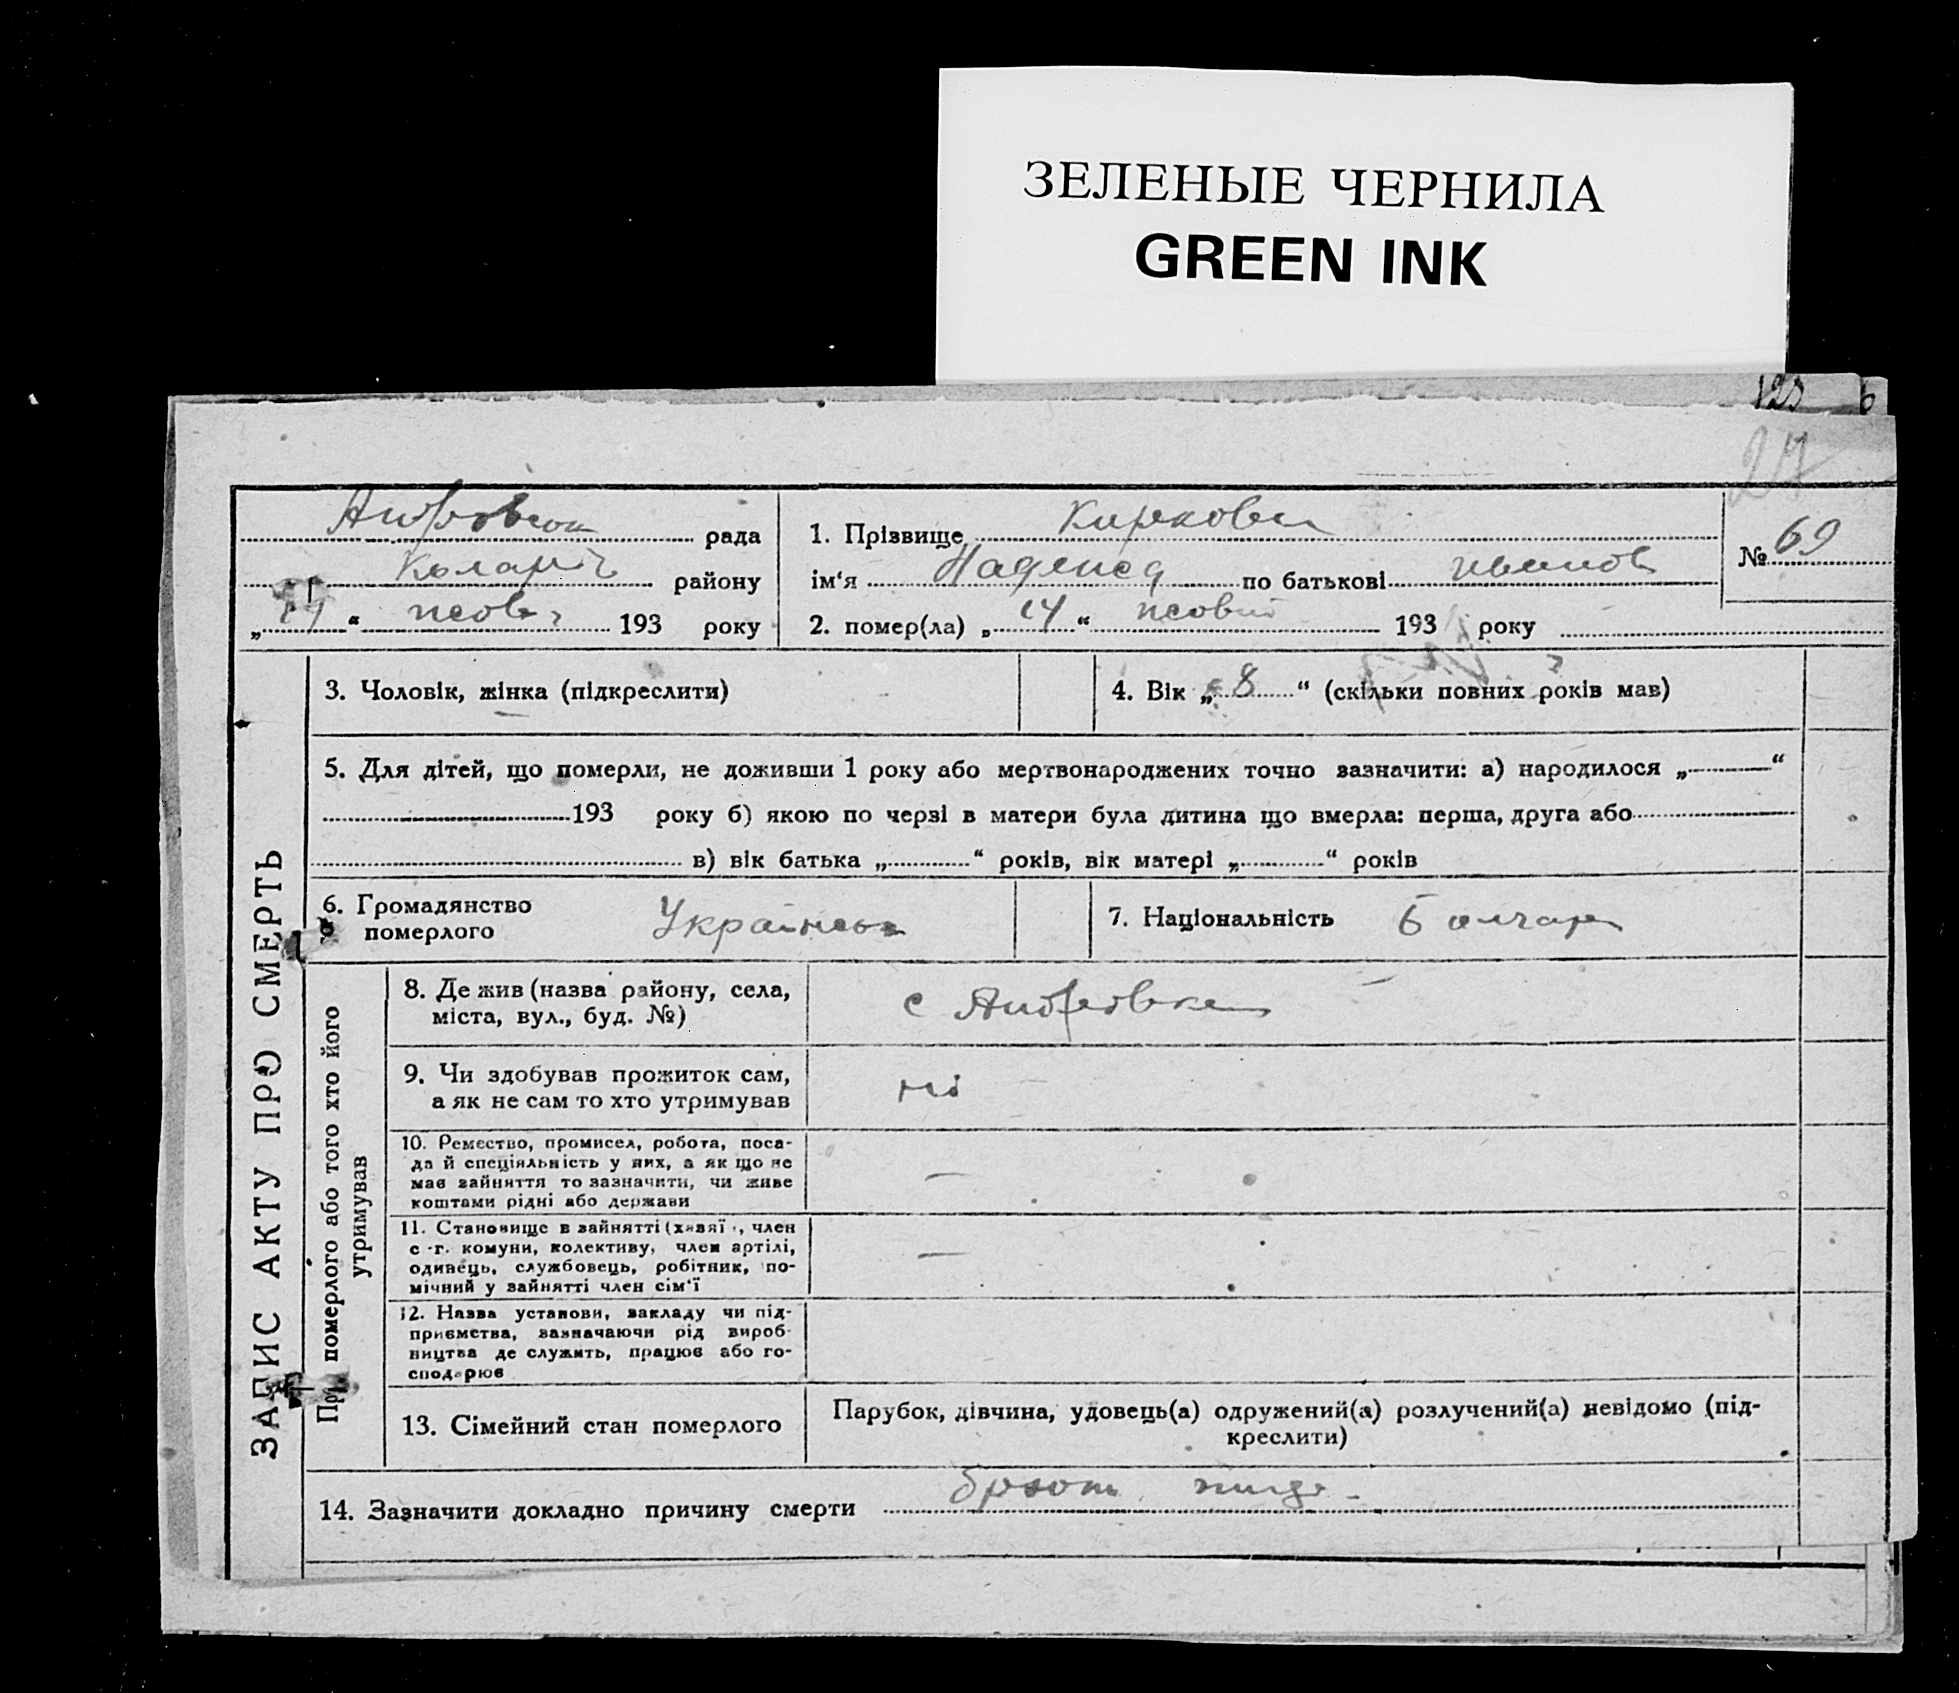 ЗЕЛЕНЫЕ ЧЕРНИЛА
GREEN INK
123 6
27
рада
1. Прізвище
№ 69
району
ім‘я Надежд по батькові Иванов
„14“ 193 року
2. помер(ла) „14“ 193 року
3. Чоловік, жінка (підкреслити)
4. Вік „8“ (скільки повних років мав)
5. Для дітей, що померли, не доживши 1 року або мертвонароджених точно зазначити: а) народилося „ “
193 року б) якою по черзі в матери була дитина що вмерла: перша, друга або
в) вік батька „ “ років, вік матері „ “ років
6. Громадянство
померлого
Українськ
7. Національність Болгар
ЗАПИС АКТУ ПРО СМЕРТЬ
Про померлого або того хто його
утримував
8. Де жив (назва району, села,
міста, вул., буд. №)
с Андровка
9. Чи здобував прожиток сам,
а як не сам то хто утримував
ні
10. Ремество, промисел, робота, поса-
да й спеціяльність у них, а як що не
має зайняття то зазначити, чи живе
коштами рідні або держави
—
11. Становище в зайнятті (хазяї , член
с.-г. комуни, колективу, член артілі,
одинець, службовець, робітник, по-
мічний у зайнятті член сім‘ї
—
12. Назва установи, закладу чи під-
приємства, зазначаючи рід вироб-
ництва де служить, працює або го-
сподарює
13. Сімейний стан померлого
Парубок, дівчина, удовець(а) одружений(а) розлучений(а) невідомо (під-
креслити)
14. Зазначити докладно причину смерти